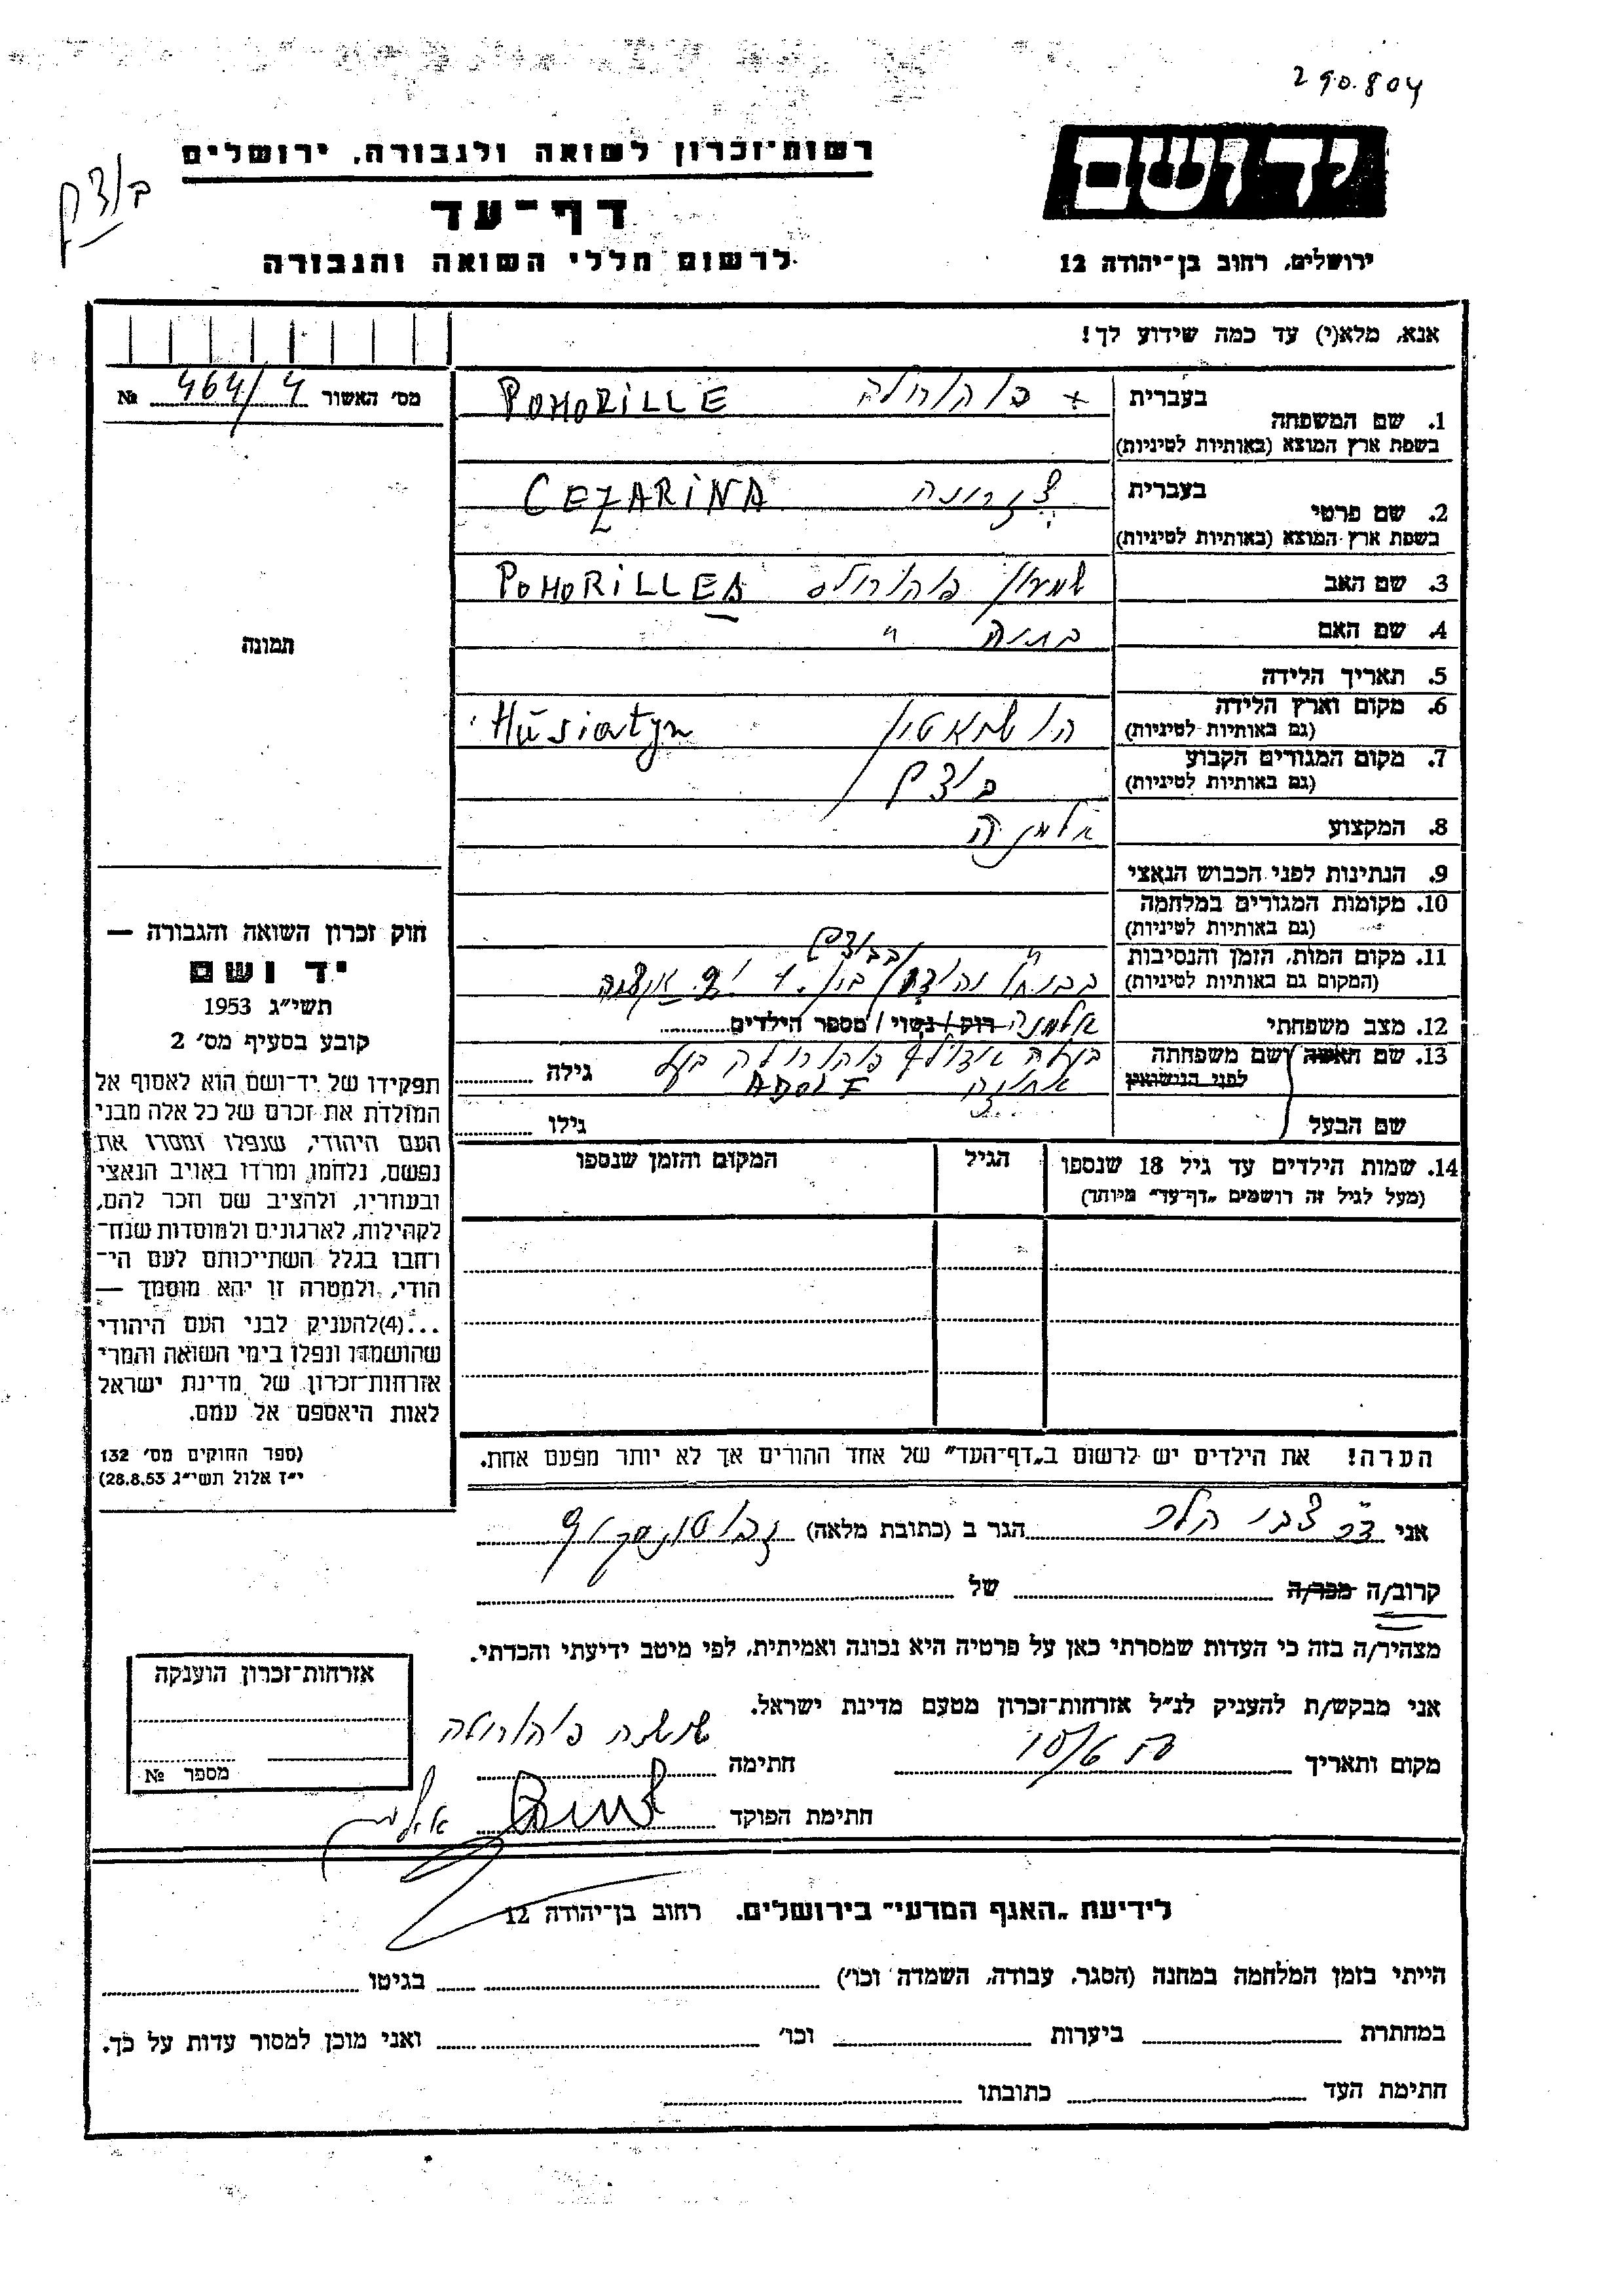 290.804
יד ושם
רשות־זכרון לשואה ולגבורה, ירושלים
דף־עד
לרשום חללי השואה והגבורה
ירושלים, רחוב בן־יהודה 12
אנא, מלא(י) עד כמה שידוע לך!
מס׳ האשור 464/4 №
תמונה
בעברית
1. שם המשפחה
בשפת ארץ המוצא (באותיות לטיניות)
פוהורלה POHORILLE
בעברית
2. שם פרטי
בשפת ארץ המוצא (באותיות לטיניות)
CEZARINA
3. שם האב
שמעון פוהורלה POHORILLE
4. שם האם
5. תאריך הלידה
6. מקום וארץ הלידה
(גם באותיות לטיניות)
Husiatyn
7. מקום המגורים הקבוע
(גם באותיות לטיניות)
8. המקצוע
9. הנתינות לפני הכבוש הנאצי
10. מקומות המגורים במלחמה
(גם באותיות לטיניות)
11. מקום המות, הזמן והנסיבות
(המקום גם באותיות לטיניות)
12. מצב משפחתי
אלמנה רוק / נשוי / מספר הילדים
13. שם האשה ושם משפחתה
לפני הנישואין
גילה
ADOLF
שם הבעל
גילו
14. שמות הילדים עד גיל 18 שנספו
(מעל לגיל זה רושמים „דף־עד״ מיוחד)
הגיל
המקום והזמן שנספו
חוק זכרון השואה והגבורה —
יד ושם
תשי״ג 1953
קובע בסעיף מס׳ 2
תפקידו של יד־ושם הוא לאסוף אל
המולדת את זכרם של כל אלה מבני
העם היהודי, שנפלו ומסרו את
נפשם, נלחמו, ומרדו באויב הנאצי
ובעוזריו, ולהציב שם וזכר להם,
לקהילות, לארגונים ולמוסדות שנח־
רחבו בגלל השתייכותם לעם הי־
הודי, ולמטרה זו יהא מוסמך —
...(4)להעניק לבני העם היהודי
שהושמדו ונפלו בימי השואה והמרי
אזרחות־זכרון של מדינת ישראל
לאות היאספם אל עמם.
(ספר החוקים מס׳ 132
י״ז אלול תשי״ג 28.8.53)
הערה! את הילדים יש לרשום ב„דף־העד״ של אחד ההורים אך לא יותר מפעם אחת.
אני צבי הלר הגר ב (כתובת מלאה)
קרוב/ה מכר/ה של
מצהיר/ה בזה כי העדות שמסרתי כאן על פרטיה היא נכונה ואמיתית, לפי מיטב ידיעתי והכרתי.
אני מבקש/ת להעניק לנ״ל אזרחות־זכרון מטעם מדינת ישראל.
מקום ותאריך חתימה
חתימת הפוקד
אזרחות־זכרון הוענקה
מספר №
לידיעת „האגף המדעי״ בירושלים. רחוב בן־יהודה 12
הייתי בזמן המלחמה במחנה (הסגר, עבודה, השמדה וכו׳) בגיטו
במחתרת ביערות וכו׳ ואני מוכן למסור עדות על כך.
חתימת העד כתובתו